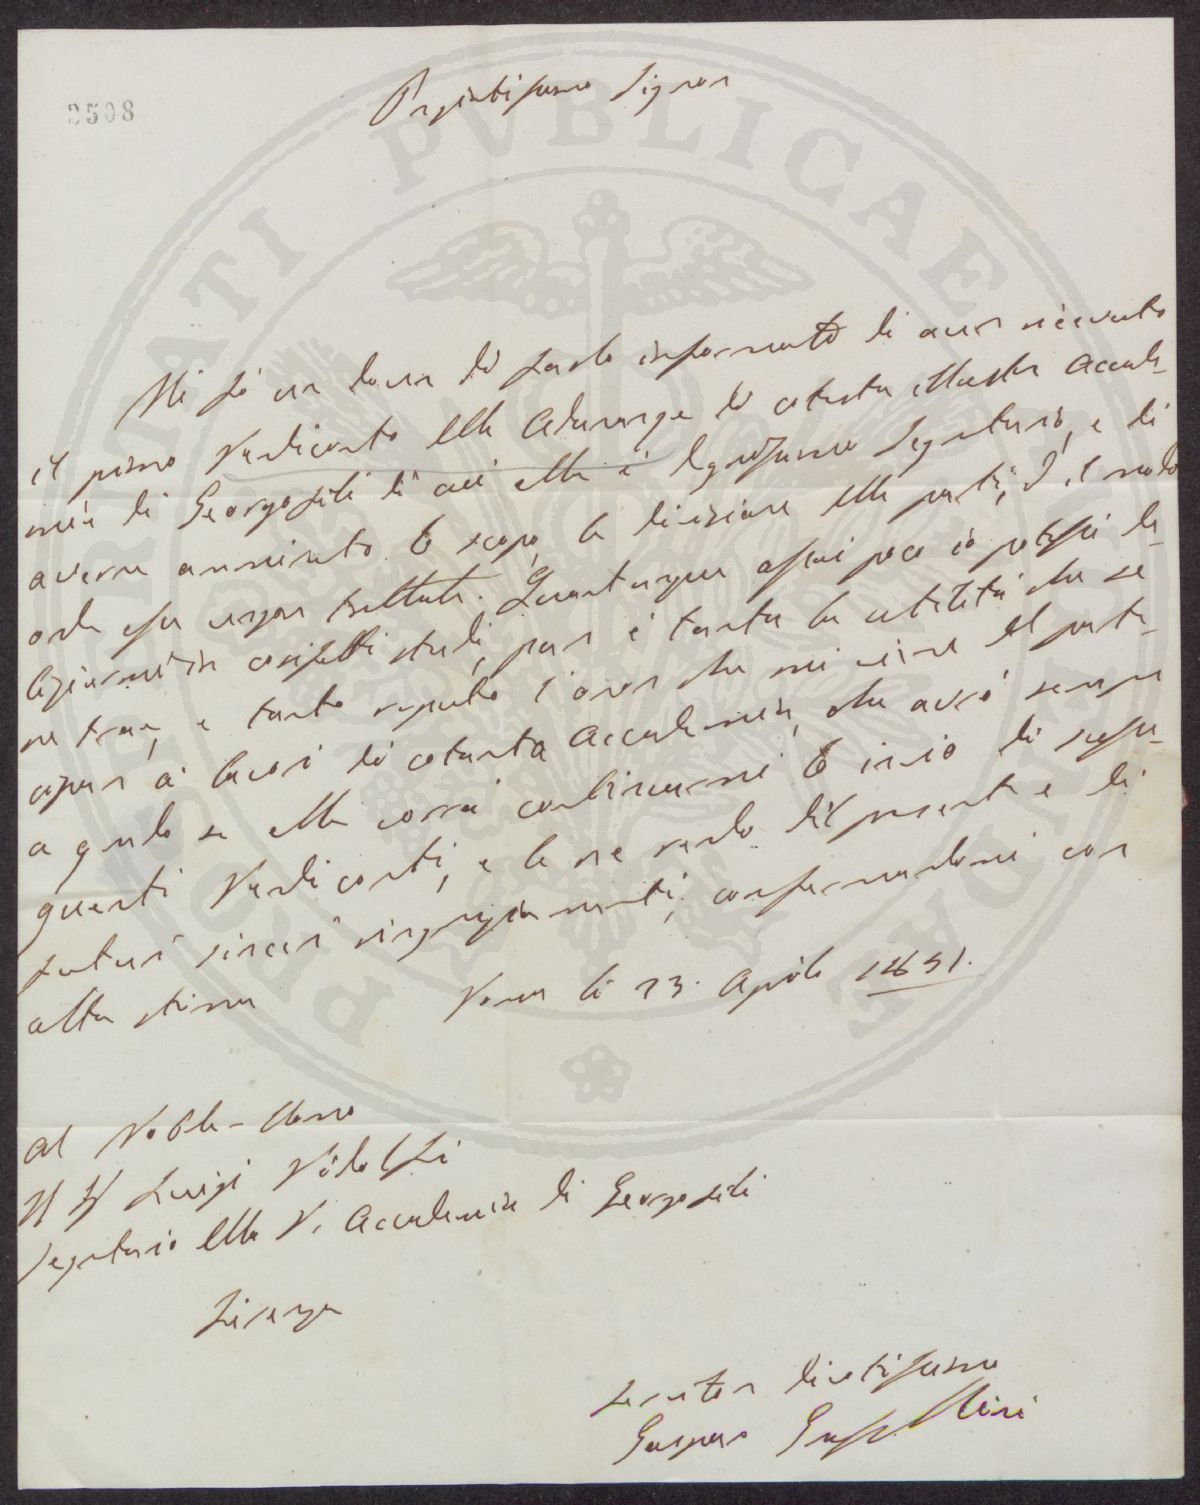 3508
Pregiatissimo Signor
PROSPERITATI PVBLICAE AVGENDAE
Mi fò un dover di farlo informato di aver ricevuto
il primo Rendiconto delle Adunanze di cotesta illustre Accade-
mia di Georgofili di cui ella è degnissimo Segretario, e di
averne ammirato lo scopo, la divisione delle parti, ed il modo
onde esse vengon trattate. Quantunque assai poco io potessi de-
liziarmi in cosifatti studi, pur è tanta la utilità che se
ne trae, e tanto reputo l'onor che mi viene del parte-
cipar ai lavori di cotesta Accademia, che avrò sempre
a grado se ella vorrà continuarmi lo invio di sifa-
questi Rendiconti, e le ne rendo del presente e di
futuri sinceri ringraziamenti, confermandomi con
alta stima Roma li 23. Aprile 1851.
Al Nobile Uomo
Luigi Ridolfi
Segretario della R. Accademia di Georgofili
Firenze
Servitor divotissimo
Gaspare